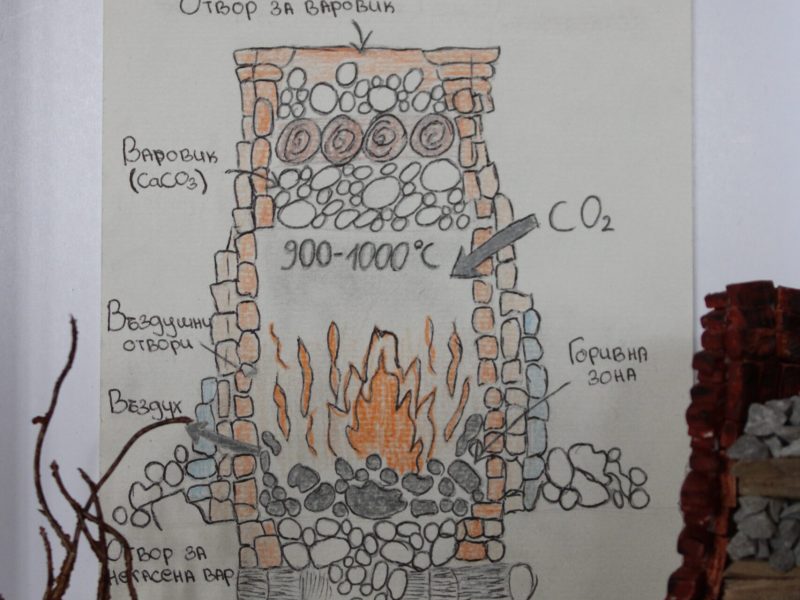 Отвор за варовик
Варовик
(CaCO₃)
CO₂
900-1000°C
Въздушни
отвори
Горивна
зона
Въздух
Отвор за
негасена вар